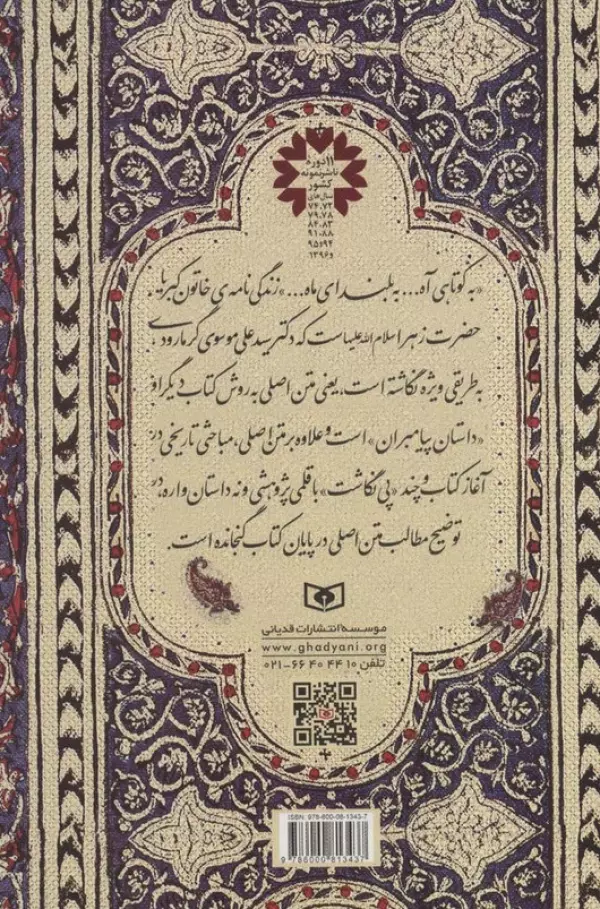 ۱۱ دوره
ناشر نمونه
کشور
سال‌های
۷۴،۷۳
۷۹،۷۸
۸۴،۸۳
۹۱،۸۸
۹۵،۹۴
و ۱۳۹۶
«به کوتاهی آه... به بلندای ماه...» زندگی نامه‌ی خاتون کبریا،
حضرت زهرا سلام الله علیها ست که دکتر سید علی موسوی گرمارودی
به طریقی ویژه نگاشته است، یعنی متن اصلی به روش کتاب دیگر او
«داستان پیامبران» است و علاوه بر متن اصلی، مباحثی تاریخی در
آغاز کتاب و چند «پی نگاشت» با قلمی پژوهشی و نه داستان واره، در
توضیح مطالب متن اصلی در پایان کتاب گنجانده است.
موسسه انتشارات قدیانی
www.ghadyani.org
تلفن ۱۰ ۴۴ ۴۰ ۶۶-۰۲۱
ISBN: 978-600-08-1343-7
9 786000 813437